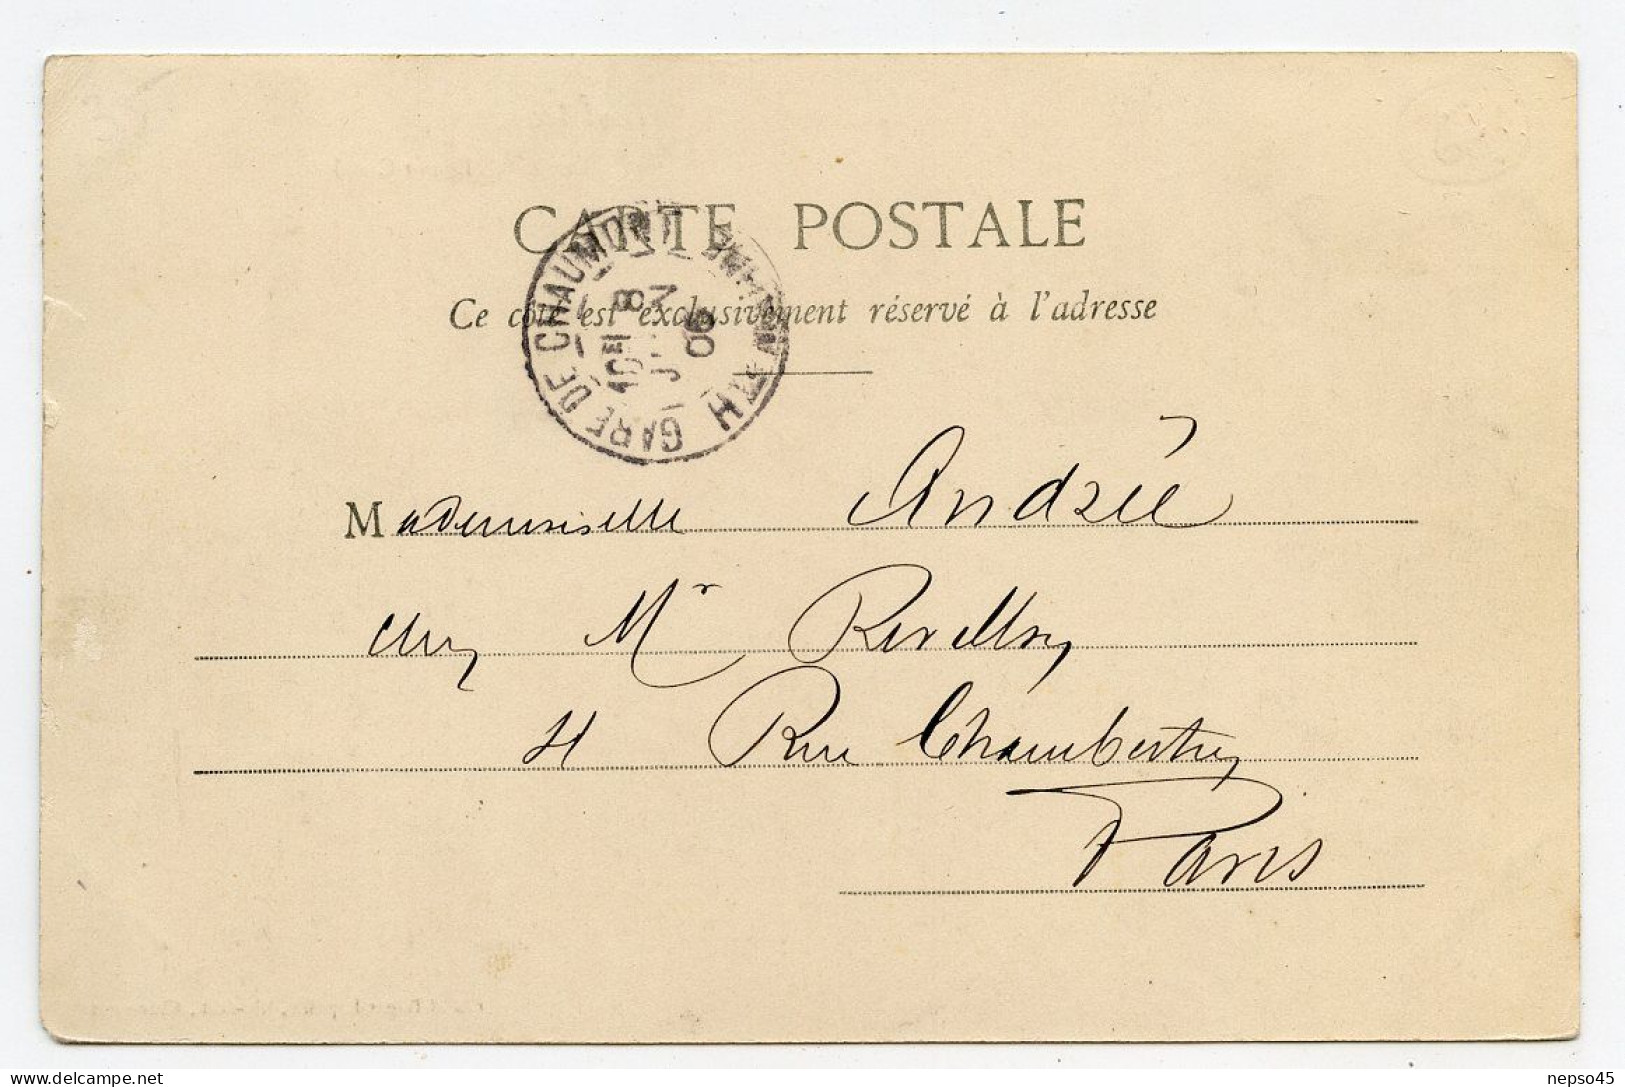 CARTE POSTALE
Ce côté est exclusivement réservé à l'adresse
GARE DE CHAUMONT HTE MARNE
10E 8
06
Mademoiselle Andrée
chez Mr
4 Rue Chambertin
Paris
nepso45